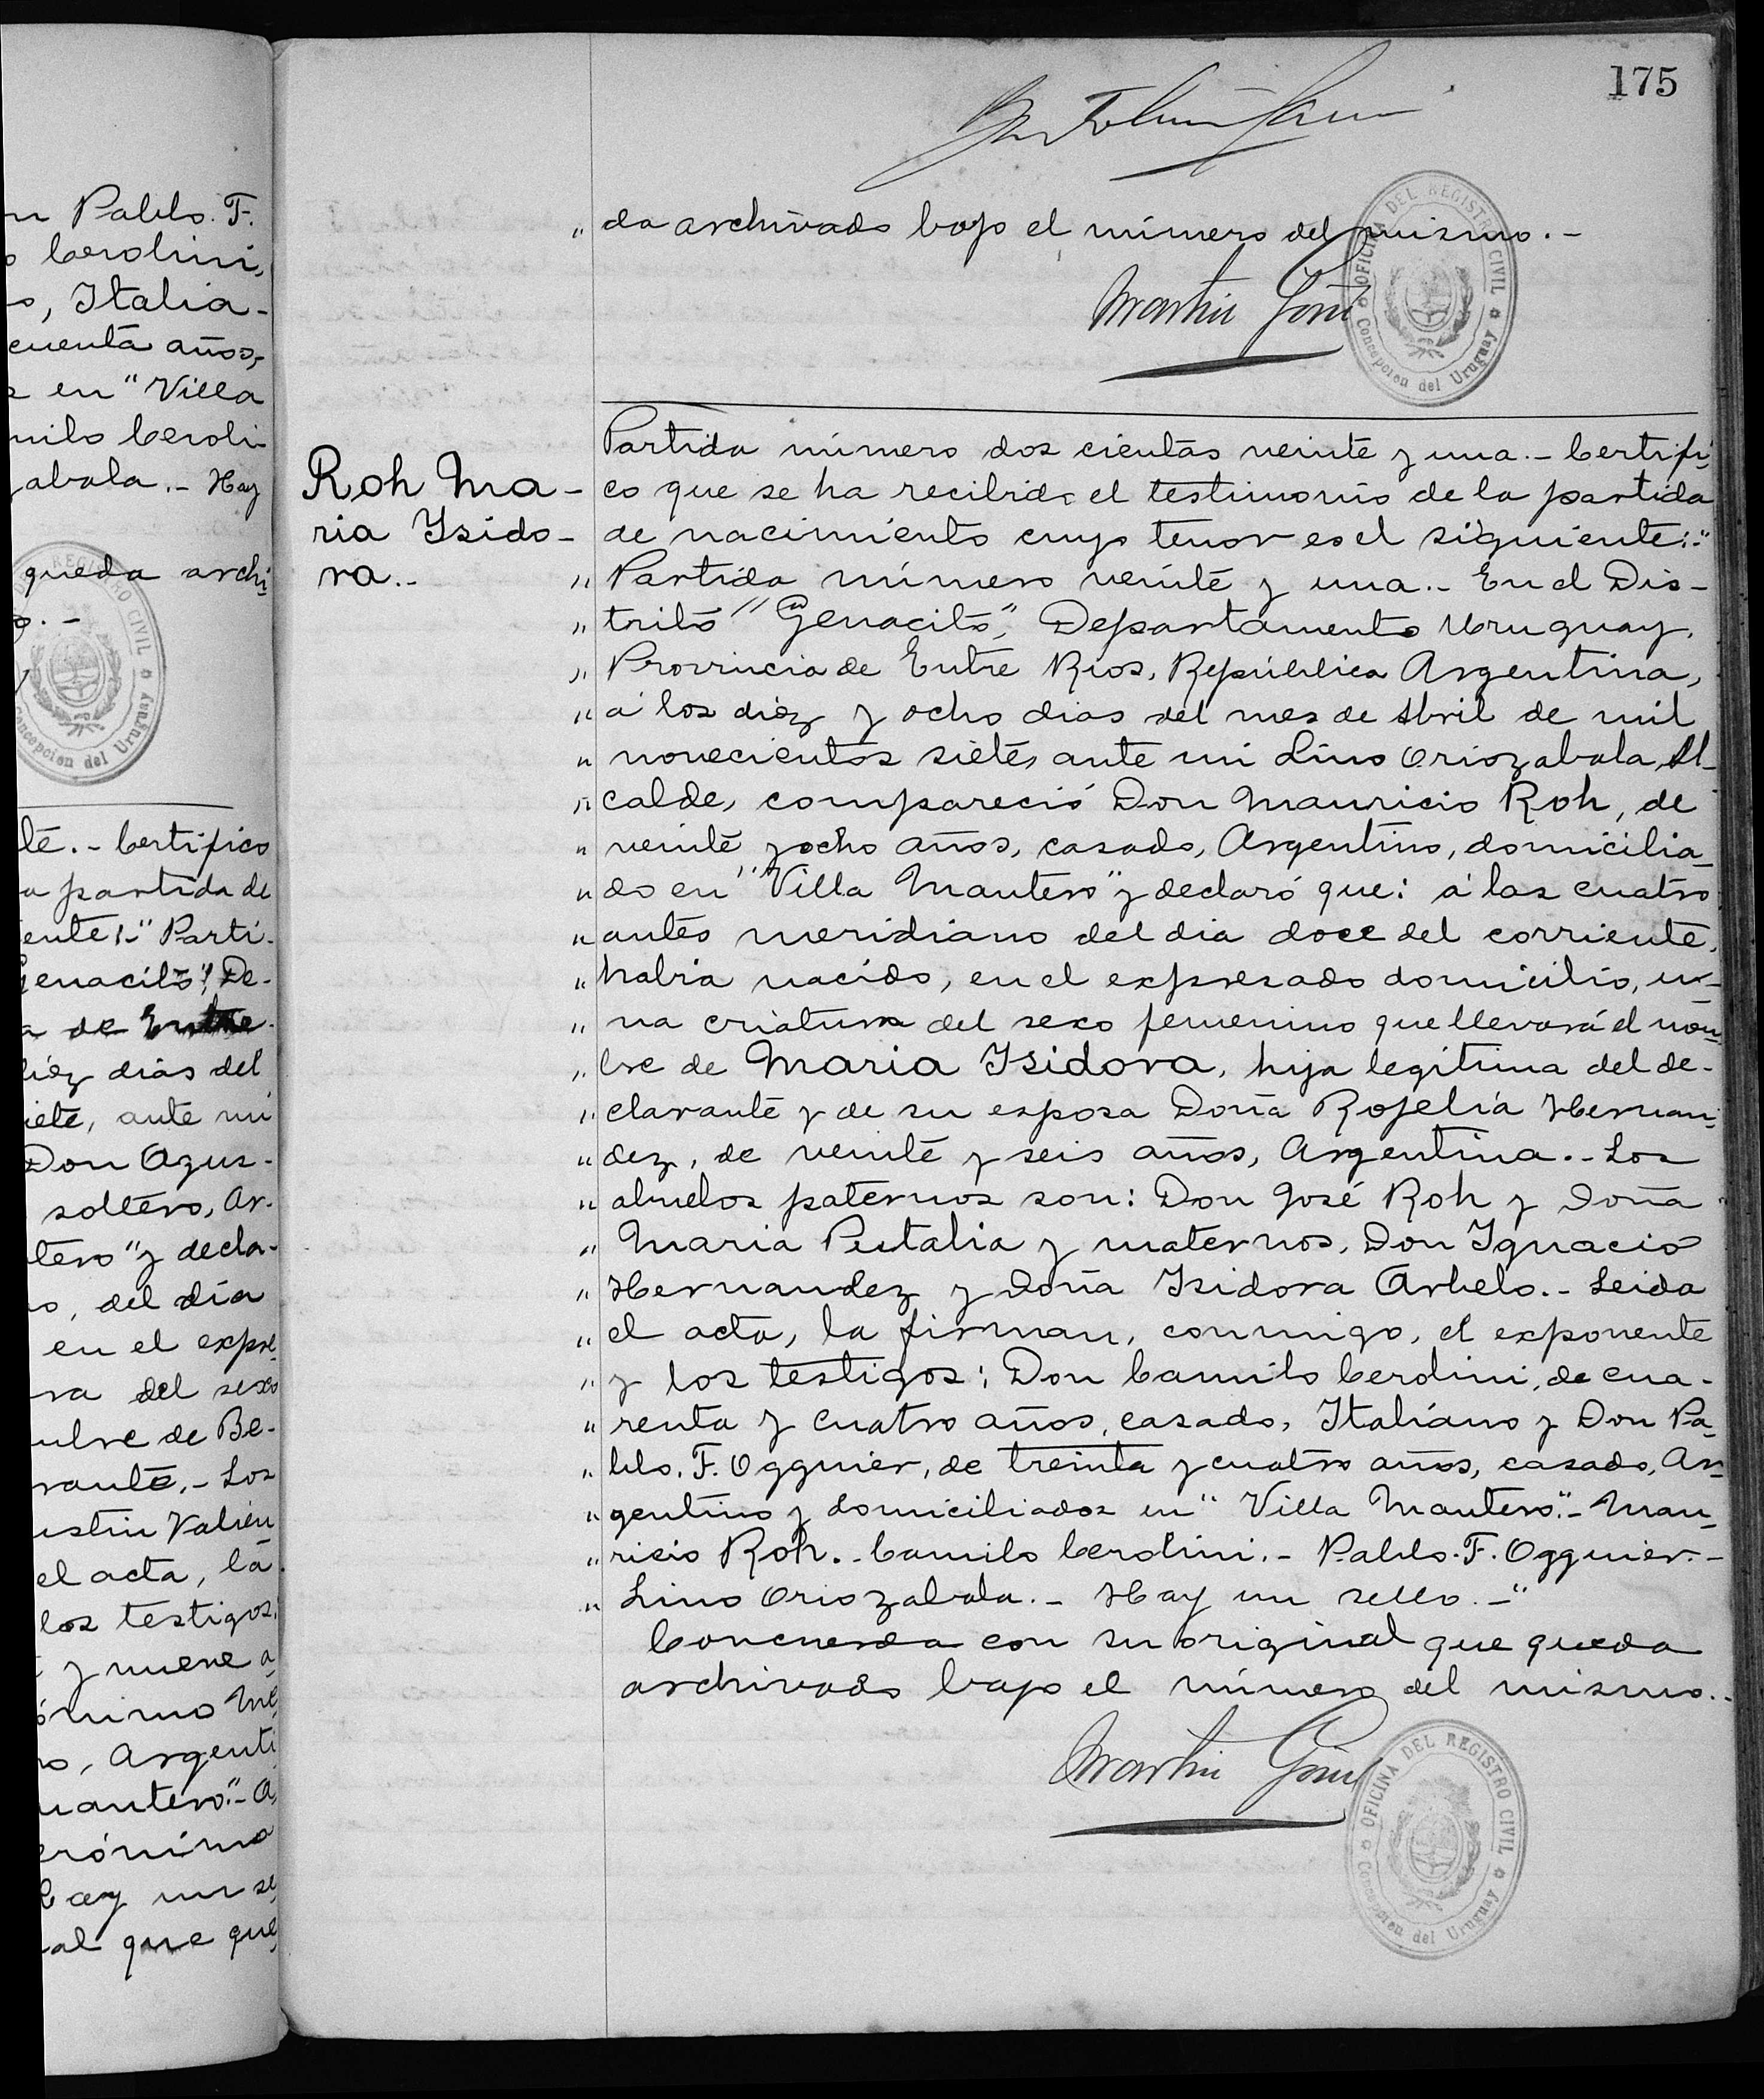 n Pablo. F.
o Cerolini,
o, Italia-
cuenta años,
en "Villa
milo Ceroli-
abala.- Hay
queda archi
o.-
te.- Certifico
a partida de
ente:-" Parti-
enacitó", De-
a de Entre
diéz dias del
iete, ante mi
Don Agus-
soltero, Ar-
tero" y decla-
o, del día
en el expre
ra del sexo
mbre de Be-
rante.- Los
ustin Valien
el acta, la
los testigos,
y nueve a
ónimo Me
o, Argenti
mantero".- A
erónimo
Hay un se
al que que
175
" da archivado bajo el número del mismo.-
Martin Goñi
OFICINA DEL REGISTRO CIVIL
Concepcion del Uruguay
Roh Ma-
ria Ysido-
ra.-
Partida número dos cientas veinte y una.- Certifi
co que se ha recibido el testimonio de la partida
de nacimiento cuyo tenor es el siguiente:-"
" Partida número veinte y una.- En el Dis-
" trito "Genacito", Departamento Uruguay,
" Provincia de Entre Rios, República Argentina,
" á los diéz y ocho dias del mes de Abril de mil
" novecientos siete, ante mi Lino Oriozabala, Al-
" calde, compareció Don Mauricio Roh, de
" veinte y ocho años, casado, Argentino, domicilia-
" do en "Villa Mantero" y declaró que: á las cuatro
" antes meridiano del dia doce del corriente,
" habia nacido, en el expresado domicilio, u-
" na criatura del sexo femenino que llevará el nom
" bre de Maria Ysidora, hija legítima del de-
" clarante y de su esposa Doña Rofelia Hernan
" dez, de veinte y seis años, Argentina.- Los
" abuelos paternos son: Don José Roh y Doña
" Maria Putalia y maternos, Don Ygnacio
" Hernandez y Doña Ysidora Arbelo.- Leida
" el acta, la firman, conmigo, el exponente
" y los testigos: Don Camilo Cerolini, de cua-
" renta y cuatro años, casado, Italiano y Don Pa
" blo. F. Oggnier, de treinta y cuatro años, casado, Ar
" gentino y domiciliados en "Villa Mantero".- Mau
" ricio Roh.- Camilo Cerolini.- Pablo. F. Oggnier.-
" Lino Oriozabala.- Hay un sello.-"
Concuerda con su original que queda
archivado bajo el número del mismo.-
Martin Goñi
OFICINA DEL REGISTRO CIVIL
Concepcion del Uruguay